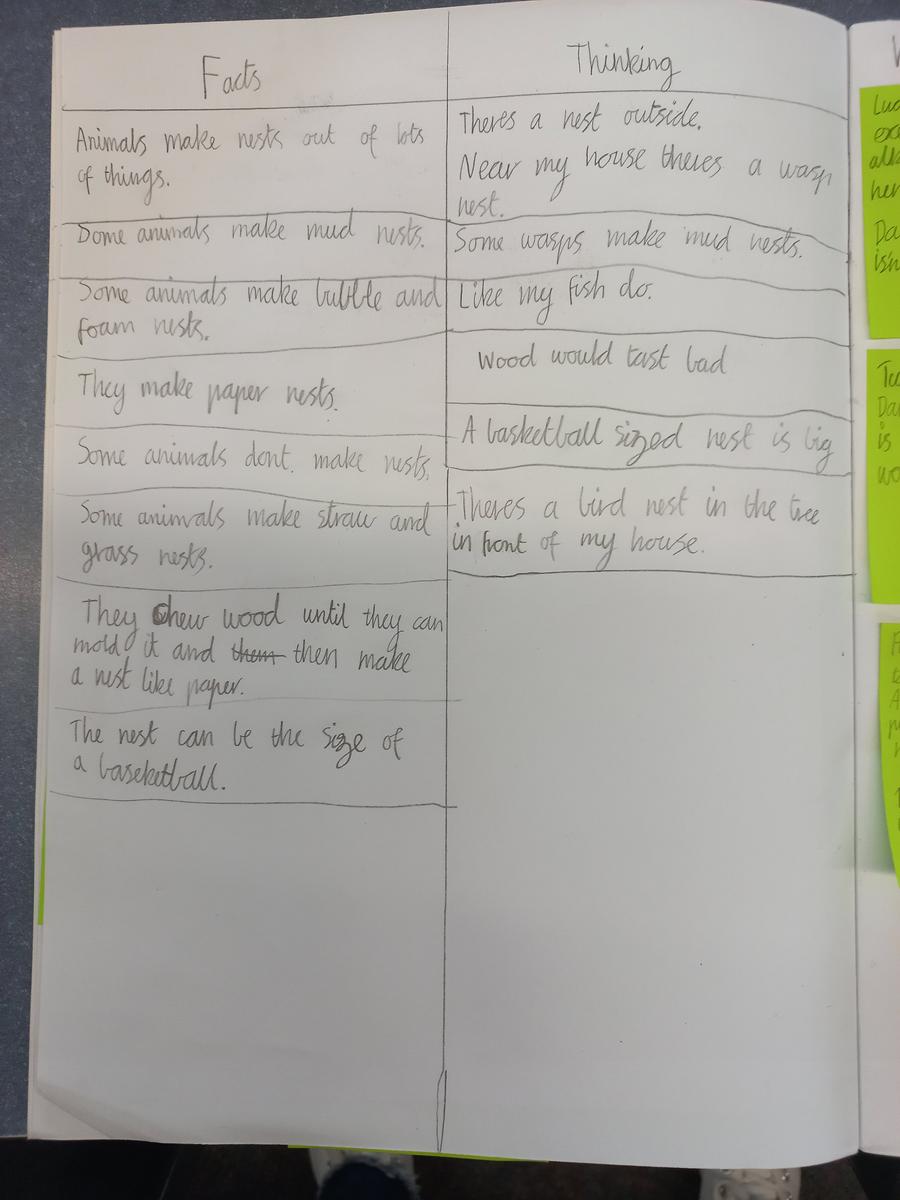 Facts
Animals make nests out of lots
of things.
Some animals make mud nests.
Some animals make bubble and
foam nests.
They make paper nests.
Some animals dont. make nests.
Some animals make straw and
grass nests.
They Chew wood until they can
mold it and them then make
a nest like paper.
The nest can be the size of
a baseketball.
Thinking
Theres a nest outside.
Near my house theres a wasp
nest.
Some wasps make mud nests.
Like my fish do.
Wood would tast bad
A basketball sized nest is big
Theres a bird nest in the tree
in front of my house.
Da
is